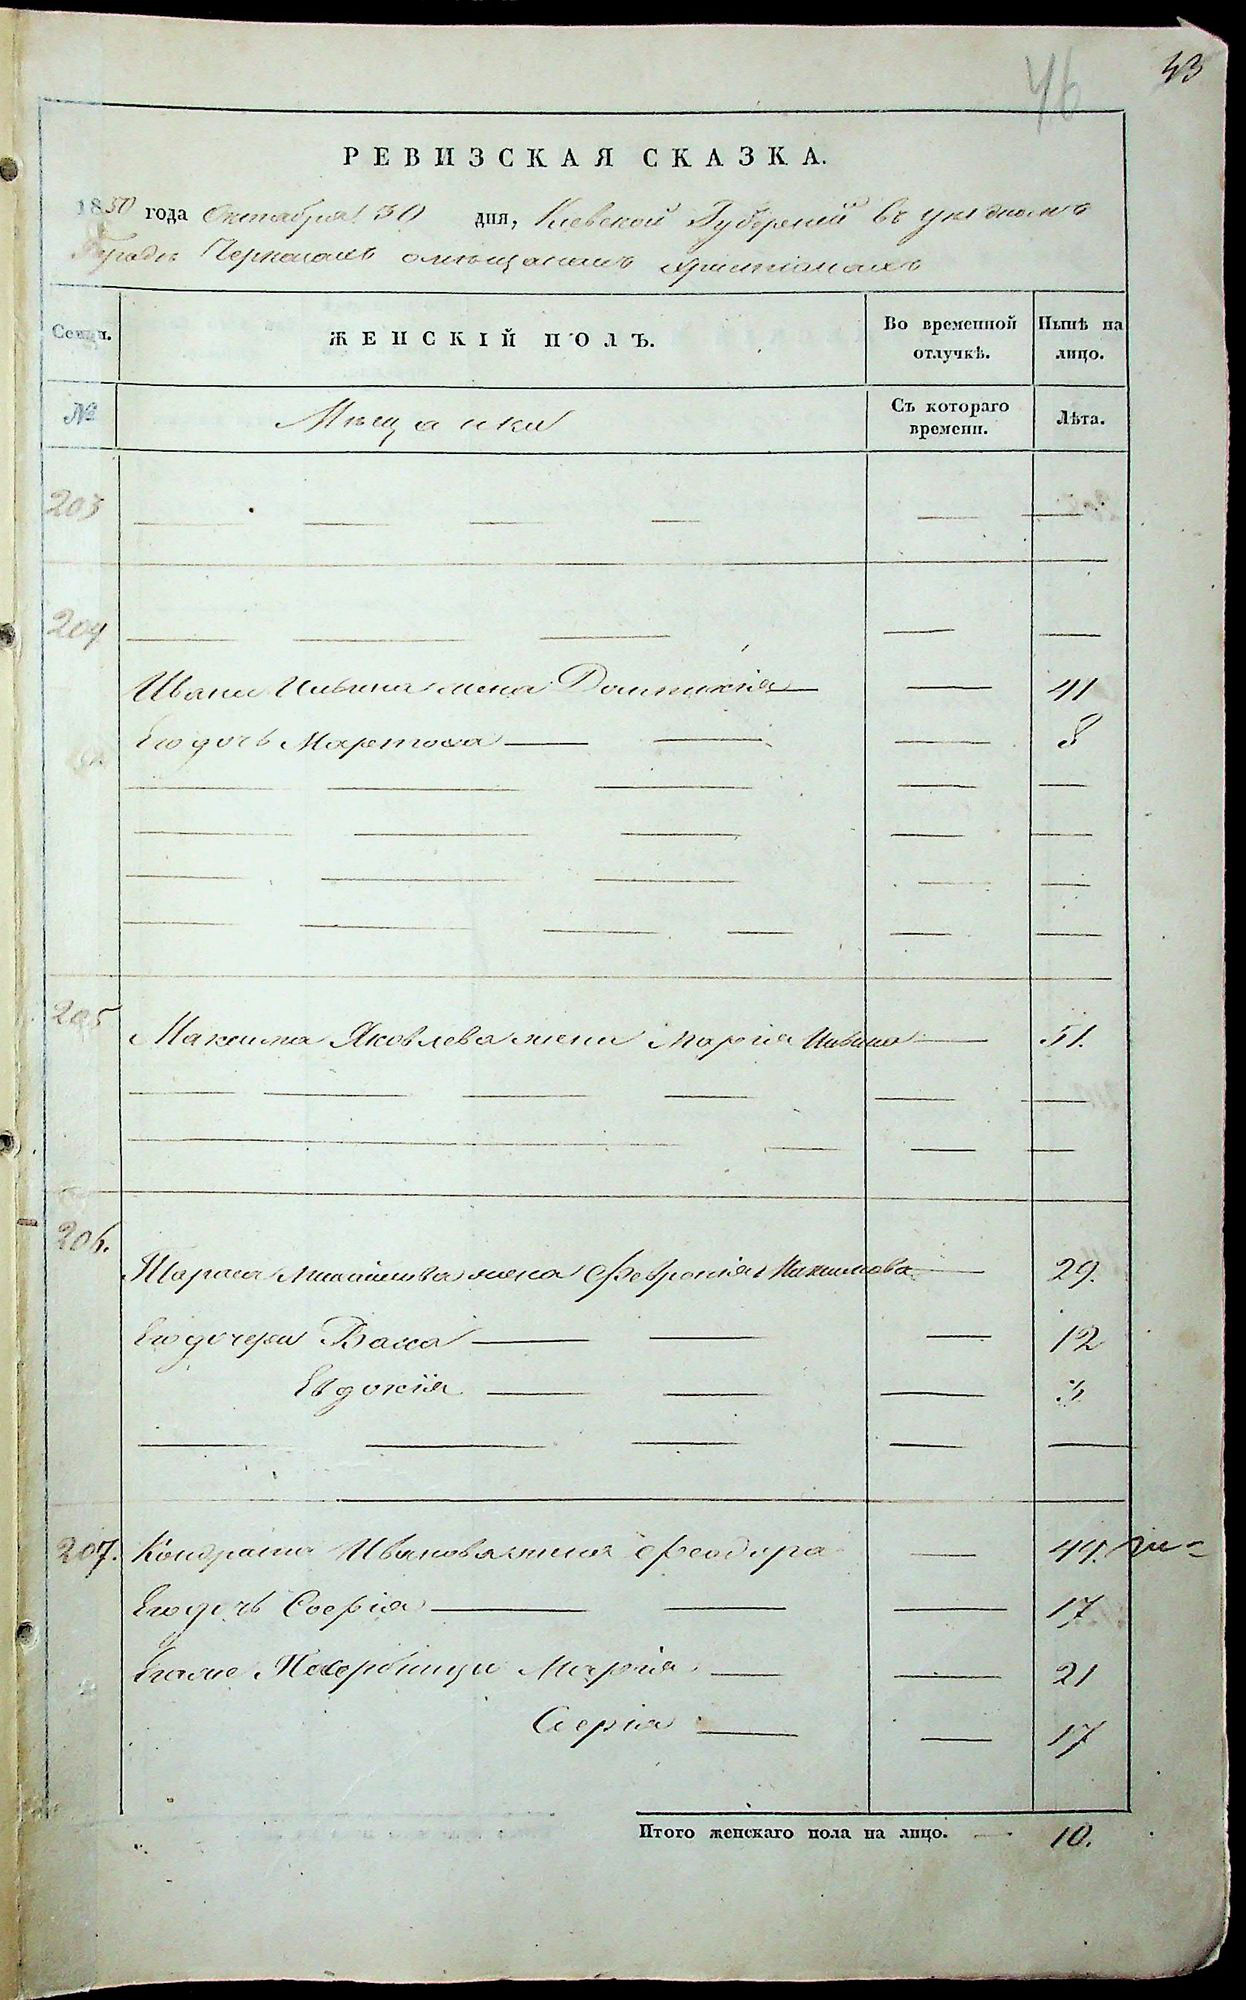 43
46
РЕВИЗСКАЯ СКАЗКА.
1850 года Октября 30 дня, Киевской Губерніи въ уездномъ
Городе Черкасахъ о мещанахъ христіанахъ
Семьи. ЖЕНСКІЙ ПОЛЪ. Во временной отлучкѣ. Нынѣ на лицо.
№ Мещанки Съ котораго времени. Лѣта.
203
204
Ивана Ильина жена 41
Его дочь 8
205 Максима Яковлева жена Марія 51.
206.
Тараса жена Февронія 29.
Его дочери Васса 12
Евдокія 3.
207. Кондрата Иванова жена Феодора 44.
Его дочь Софія 17
Марія 21
Софія 17
Итого женскаго пола на лицо. 10.